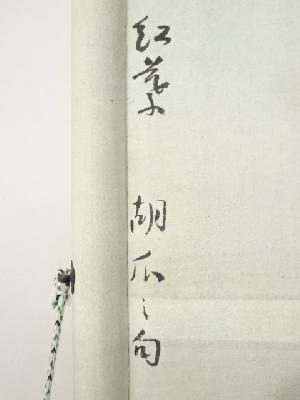 紅葉 胡瓜之句